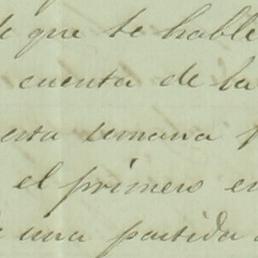 que te hable
cuenta de la
esta semana
el primero en
una partida